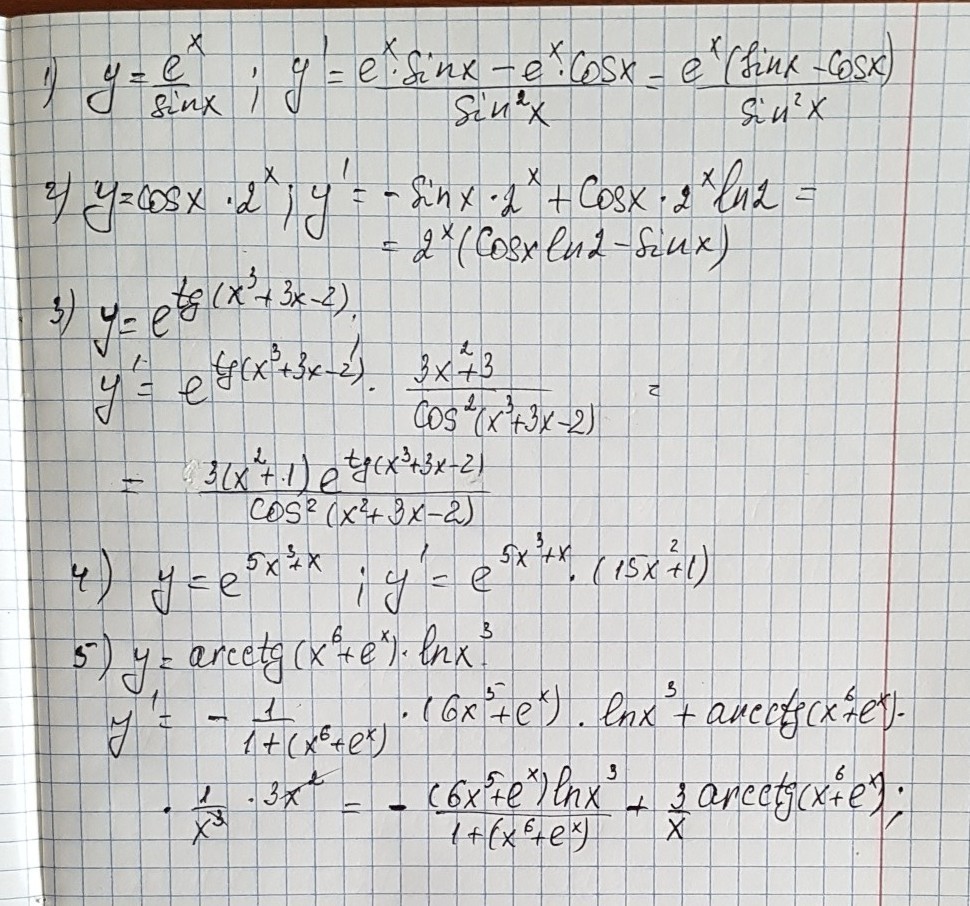 1) y = e^x / sinx ; y' = e^x · sinx − e^x · cosx / sin²x = e^x (sinx − cosx) / sin²x
2) y = cosx · 2^x ; y' = − sinx · 2^x + cosx · 2^x ln2 =
= 2^x (cosx ln2 − sinx)
3) y = e^tg(x³+3x−2).
y' = e^tg(x³+3x−2) · 3x²+3 / cos²(x³+3x−2) =
= 3(x²+1) e^tg(x³+3x−2) / cos²(x²+3x−2)
4) y = e^5x³+x ; y' = e^5x³+x · (15x²+1)
5) y = arcctg(x⁶+e^x) · lnx³
y' = − 1 / 1+(x⁶+e^x) · (6x⁵+e^x) · lnx³ + arcctg(x⁶+e^x) ·
· 1 / x³ · 3x² = − (6x⁵+e^x) lnx³ / 1+(x⁶+e^x) + 3 / x arcctg(x⁶+e^x);